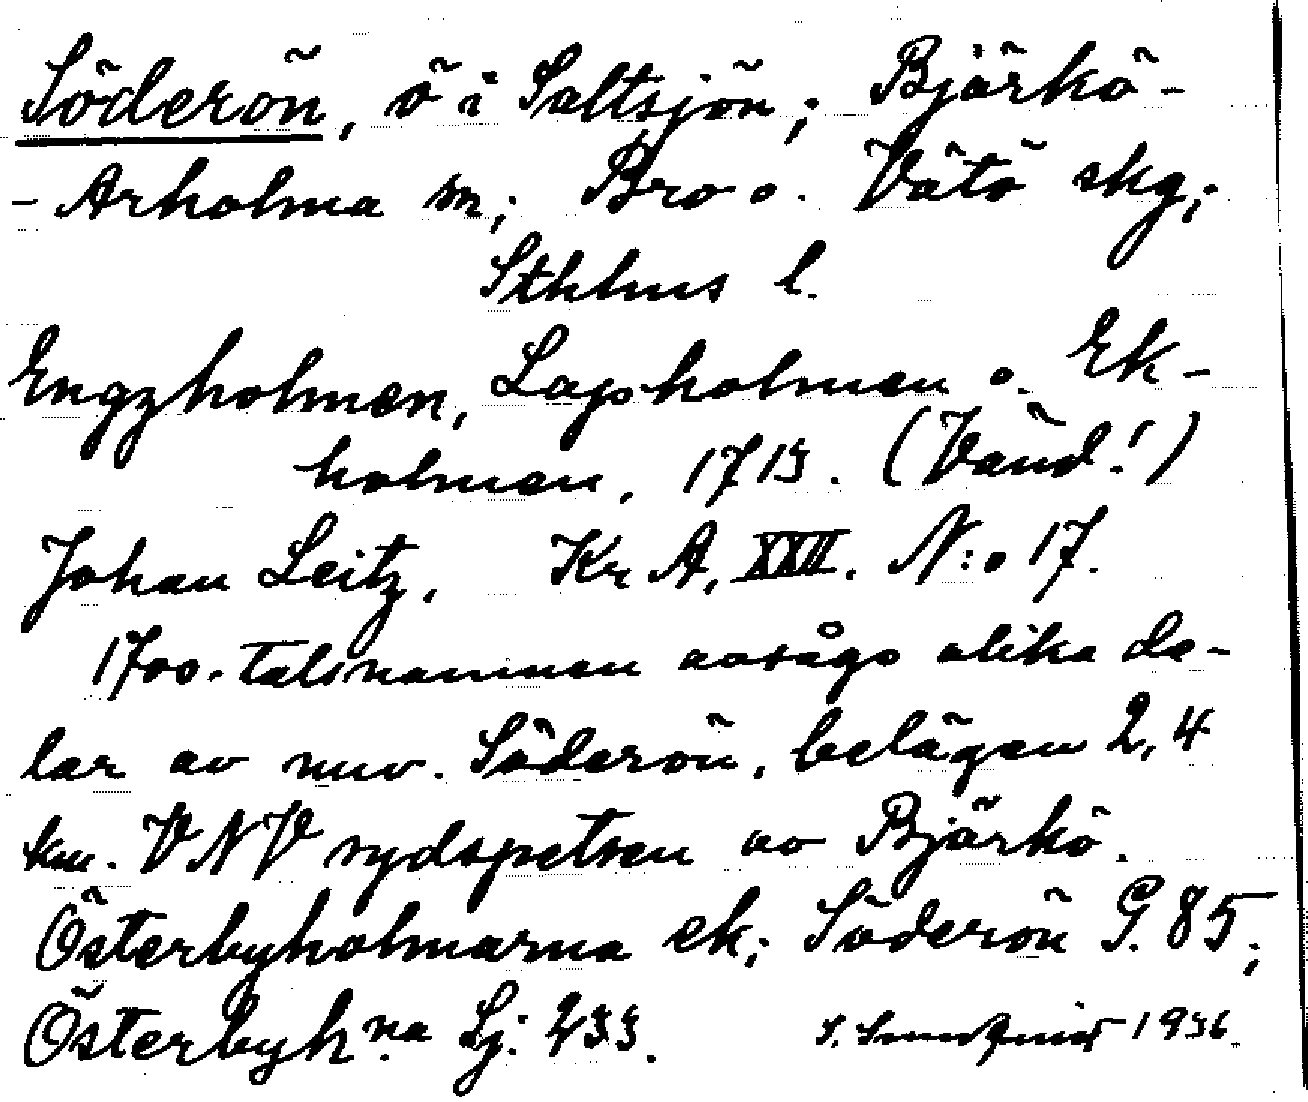 Söderön, ö i Saltsjön; Björkö-
-Arholma sn; Bro o. Vätö skg;
Sthlms l.
Engzholmen, Lapsholmen o. Ek-
holmen, 1715. (Vänd!)
Johan Leitz, Kr A, XXII. N:o 17.
1700-talsnamnen avsågo olika de-
lar av nuv. Söderön, belägen 2,4
km. VNV sydspetsen av Björkö.
Österbyholmarna ek; Söderön G. 85;
Österbyh:na Sj: 233.
1936